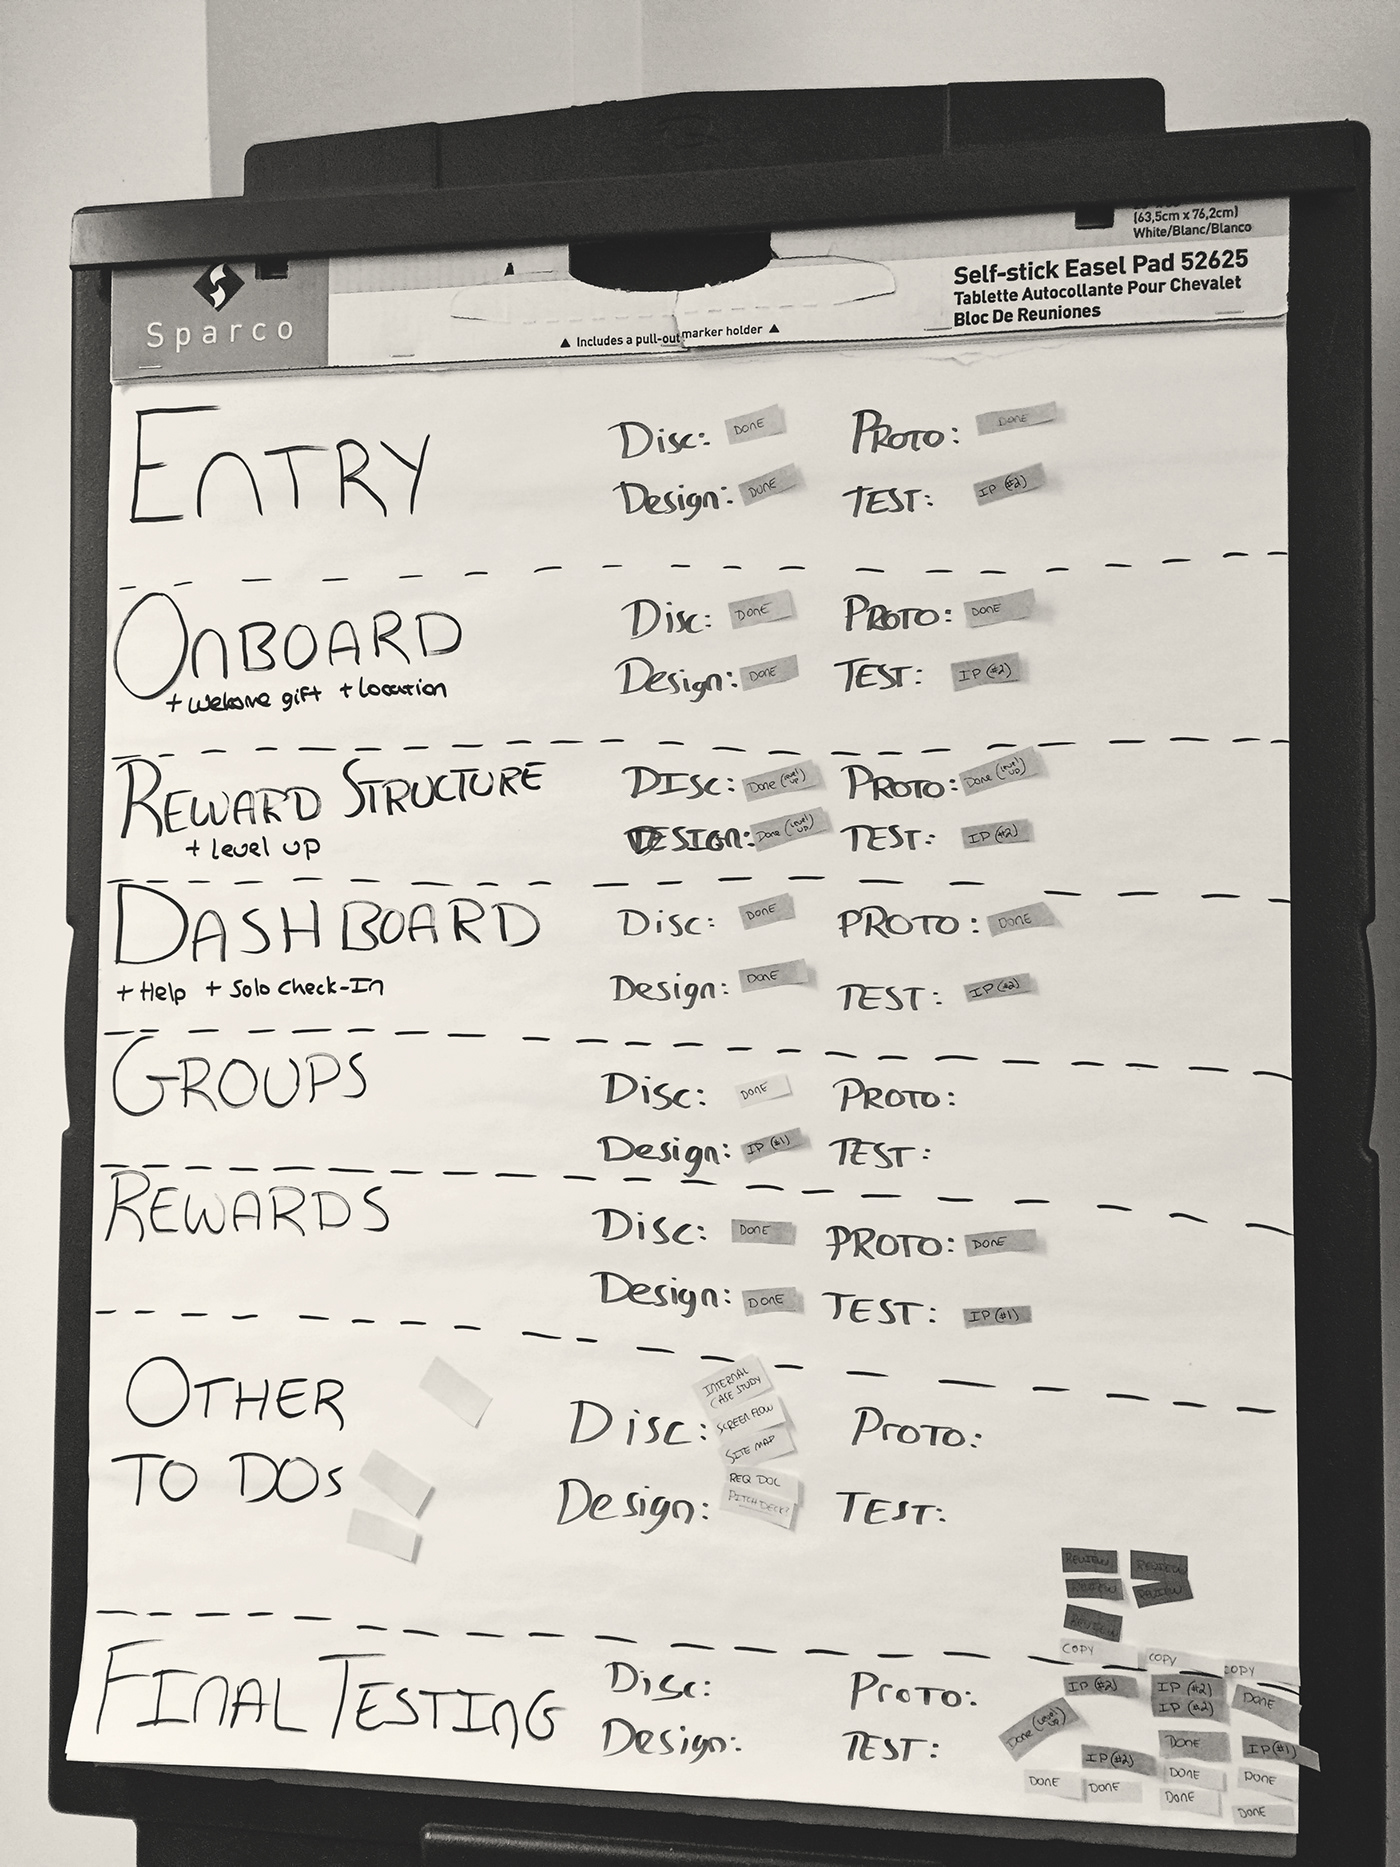 (63,5cm x 76,2cm)
White/Blanc/Blanco
Self-stick Easel Pad 52625
Tablette Autocollante Pour Chevalet
Bloc De Reuniones
Sparco
▲ Includes a pull-out marker holder ▲
ENTRY
Disc: DONE
PROTO: DONE
Design: DONE
TEST: IP (#2)
ONBOARD
+ Welcome gift + Location
Disc: DONE
PROTO: DONE
Design: DONE
TEST: IP (#2)
REWARD STRUCTURE
+ level up
DISC: Done (level up)
PROTO: Done (level up)
DESIGN: Done (level up)
TEST: IP (#2)
DASHBOARD
+ Help + Solo Check-In
Disc: DONE
PROTO: DONE
Design: DONE
TEST: IP (#2)
GROUPS
Disc: DONE
PROTO:
Design: IP (#1)
TEST:
REWARDS
Disc: DONE
PROTO: DONE
Design: DONE
TEST: IP (#1)
OTHER
TO DOs
Disc:
INTERNAL
CASE STUDY
SCREEN FLOW
SITE MAP
PROTO:
Design:
REQ DOC
PITCH DECK?
TEST:
REVIEW REVIEW
REVIEW REVIEW
REVIEW
COPY COPY COPY
FINAL TESTING
Disc:
PROTO:
Design:
TEST:
IP (#2) IP (#2) DONE
IP (#2)
Done (level up)
DONE IP (#1)
IP (#2)
DONE DONE DONE DONE
DONE DONE